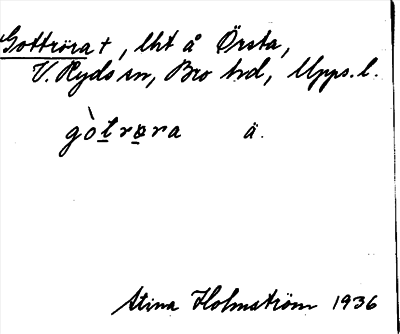 Gottröra +, lht å Örsta,
V. Ryds sn, Bro hrd, Upps. l.
gòtrøra ä.
Stina Holmström 1936